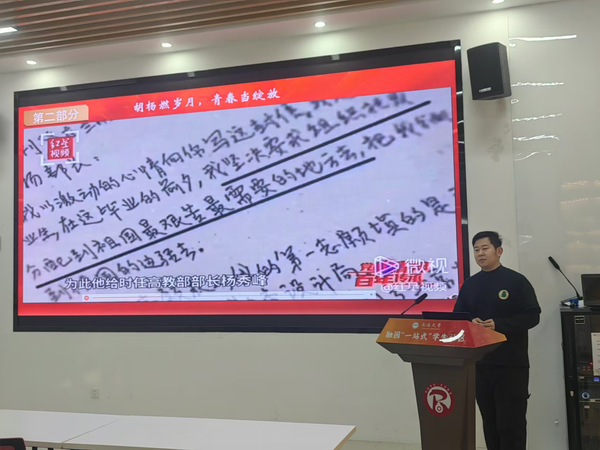 胡杨燃岁月，青春当绽放
第二部分
红星
视频
杨部长：
我以激动的心情向你写这封信，
业生，在这毕业的前夕，我坚决要求组织把我
分配到祖国最艰苦最需要的地方去，把我
的第一志愿填的是
设计局
为此他给时任高教部部长杨秀峰
微视
@红星视频
融园“一站式”学生